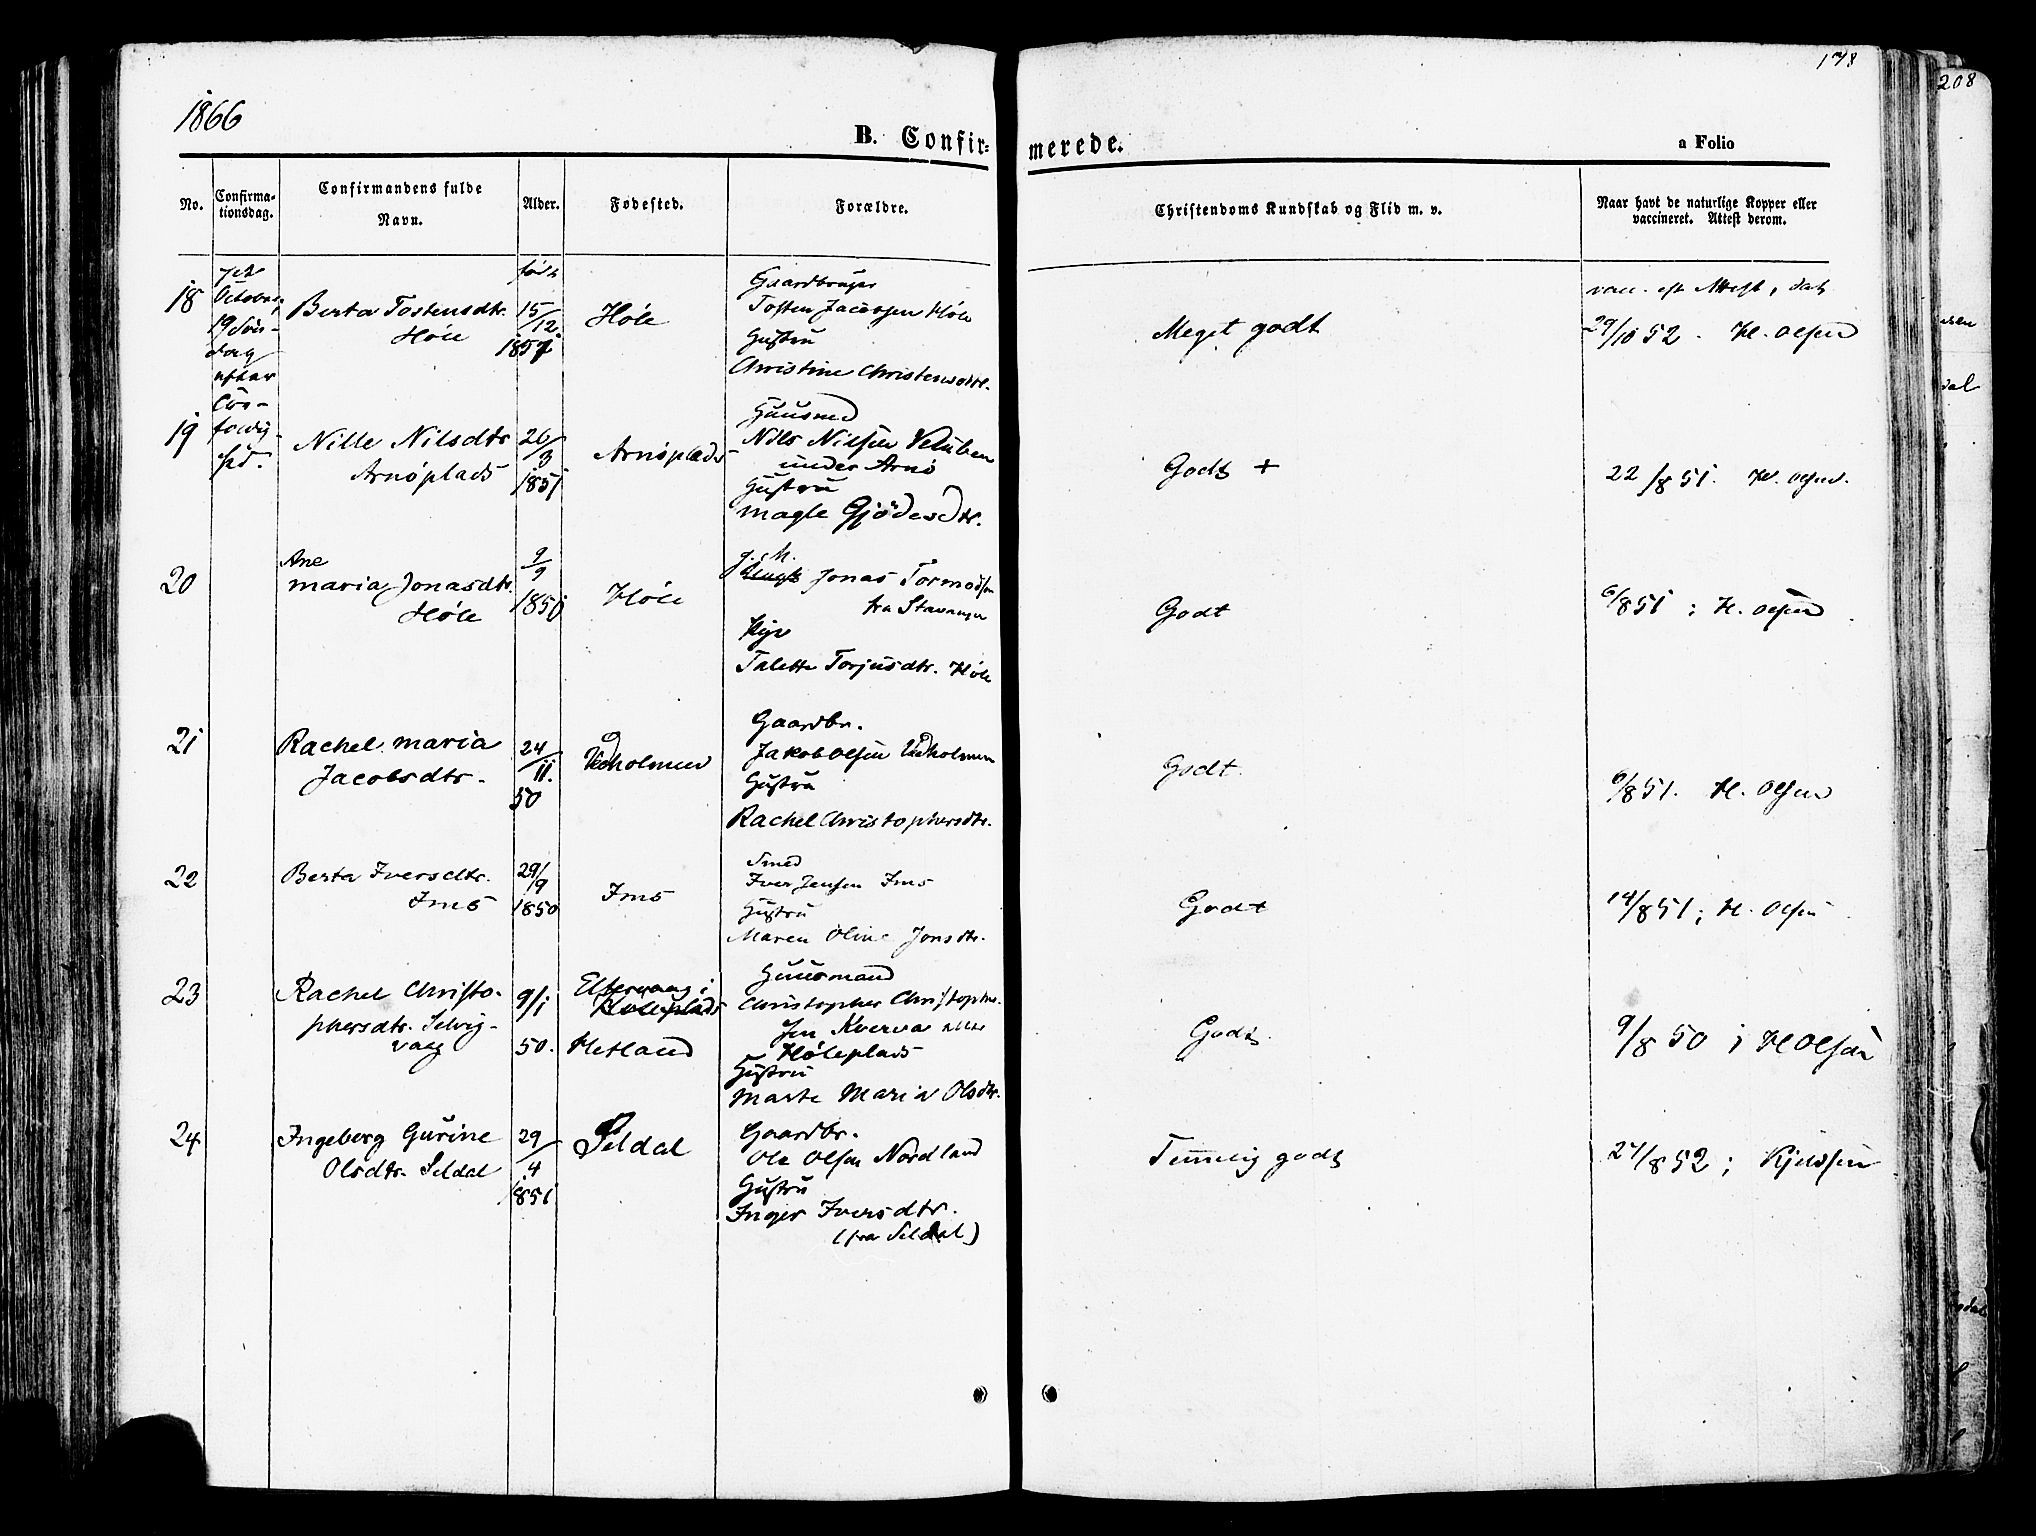 178
208
1866
B. Confir-
merede.
a Folio
No.
Confirma-
tionsdag.
Confirmandens fulde
Navn.
Alder.
Fødested.
Forældre.
Christendoms Kundskab og Flid m. v.
Naar havt de naturlige Kopper eller
vaccineret. Attest derom.
18
October
19 Søn-
dag
efter
Tre-
foldig-
hed.
Berta Tostensdtr.
Høle
født
15/12
Høle
Gaardbruger
Tosten Jacobsen Høle
Hustru
Christine Christensdtr.
Meget godt
vacc. eft Attest, dat
29/10 52. H. Olsen
19
Nille Nilsdtr
Arnøplads
26/3
1851
Arnøplads
Huusmd
Nils Nilsen
under Arnø
Hustru
Magle Gjødesdtr.
Godt +
22/8 51. H. Olsen.
20
Ane
Maria Jonasdtr.
Høle
9/9
1850
Høle
Jonas Tormodsen
fra Stavanger
Pige
Talette Torjusdtr. Høle
Godt
6/8 51; H. Olsen
21
Rachel Maria
Jacobsdtr.
24/11.
50
Vedholmen
Gaardbr.
Jakob Olsen Vedholmen
Hustru
Rachel Christophersdtr.
Godt.
6/8 51. H. Olsen
22
Berta Iversdtr.
Ims
29/9
1850
Ims
Smed
Iver Jensen Ims
Hustru
Maren Oline Jonsdtr.
Godt
14/8 51; H. Olsen
23
Rachel Christo-
phersdtr. Selvig-
vaag
9/1
50.
Høleplads
Hetland
Huusmand
Christopher Christopher-
sen Kverva eller
Høleplads
Hustru
Marte Maria Olsdtr.
Godt.
9/8 50; H Olsen
24
Ingeborg Gurine
Olsdtr. Seldal
29/4
1851
Seldal
Gaardbr.
Ole Olsen Nordland
Hustru
Inger Iversdtr.
(fra Seldal)
Temmelig godt
24/8 52; Kjeldsen